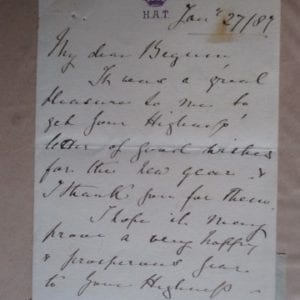 H.A.T.
Jan^y 27/89
My dear Begum,
It was a great
pleasure to me to
get your Highness'
letter of good wishes
for the new year &
I thank you for them.
I hope it may
prove a very happy
& prosperous year
to Your Highness -